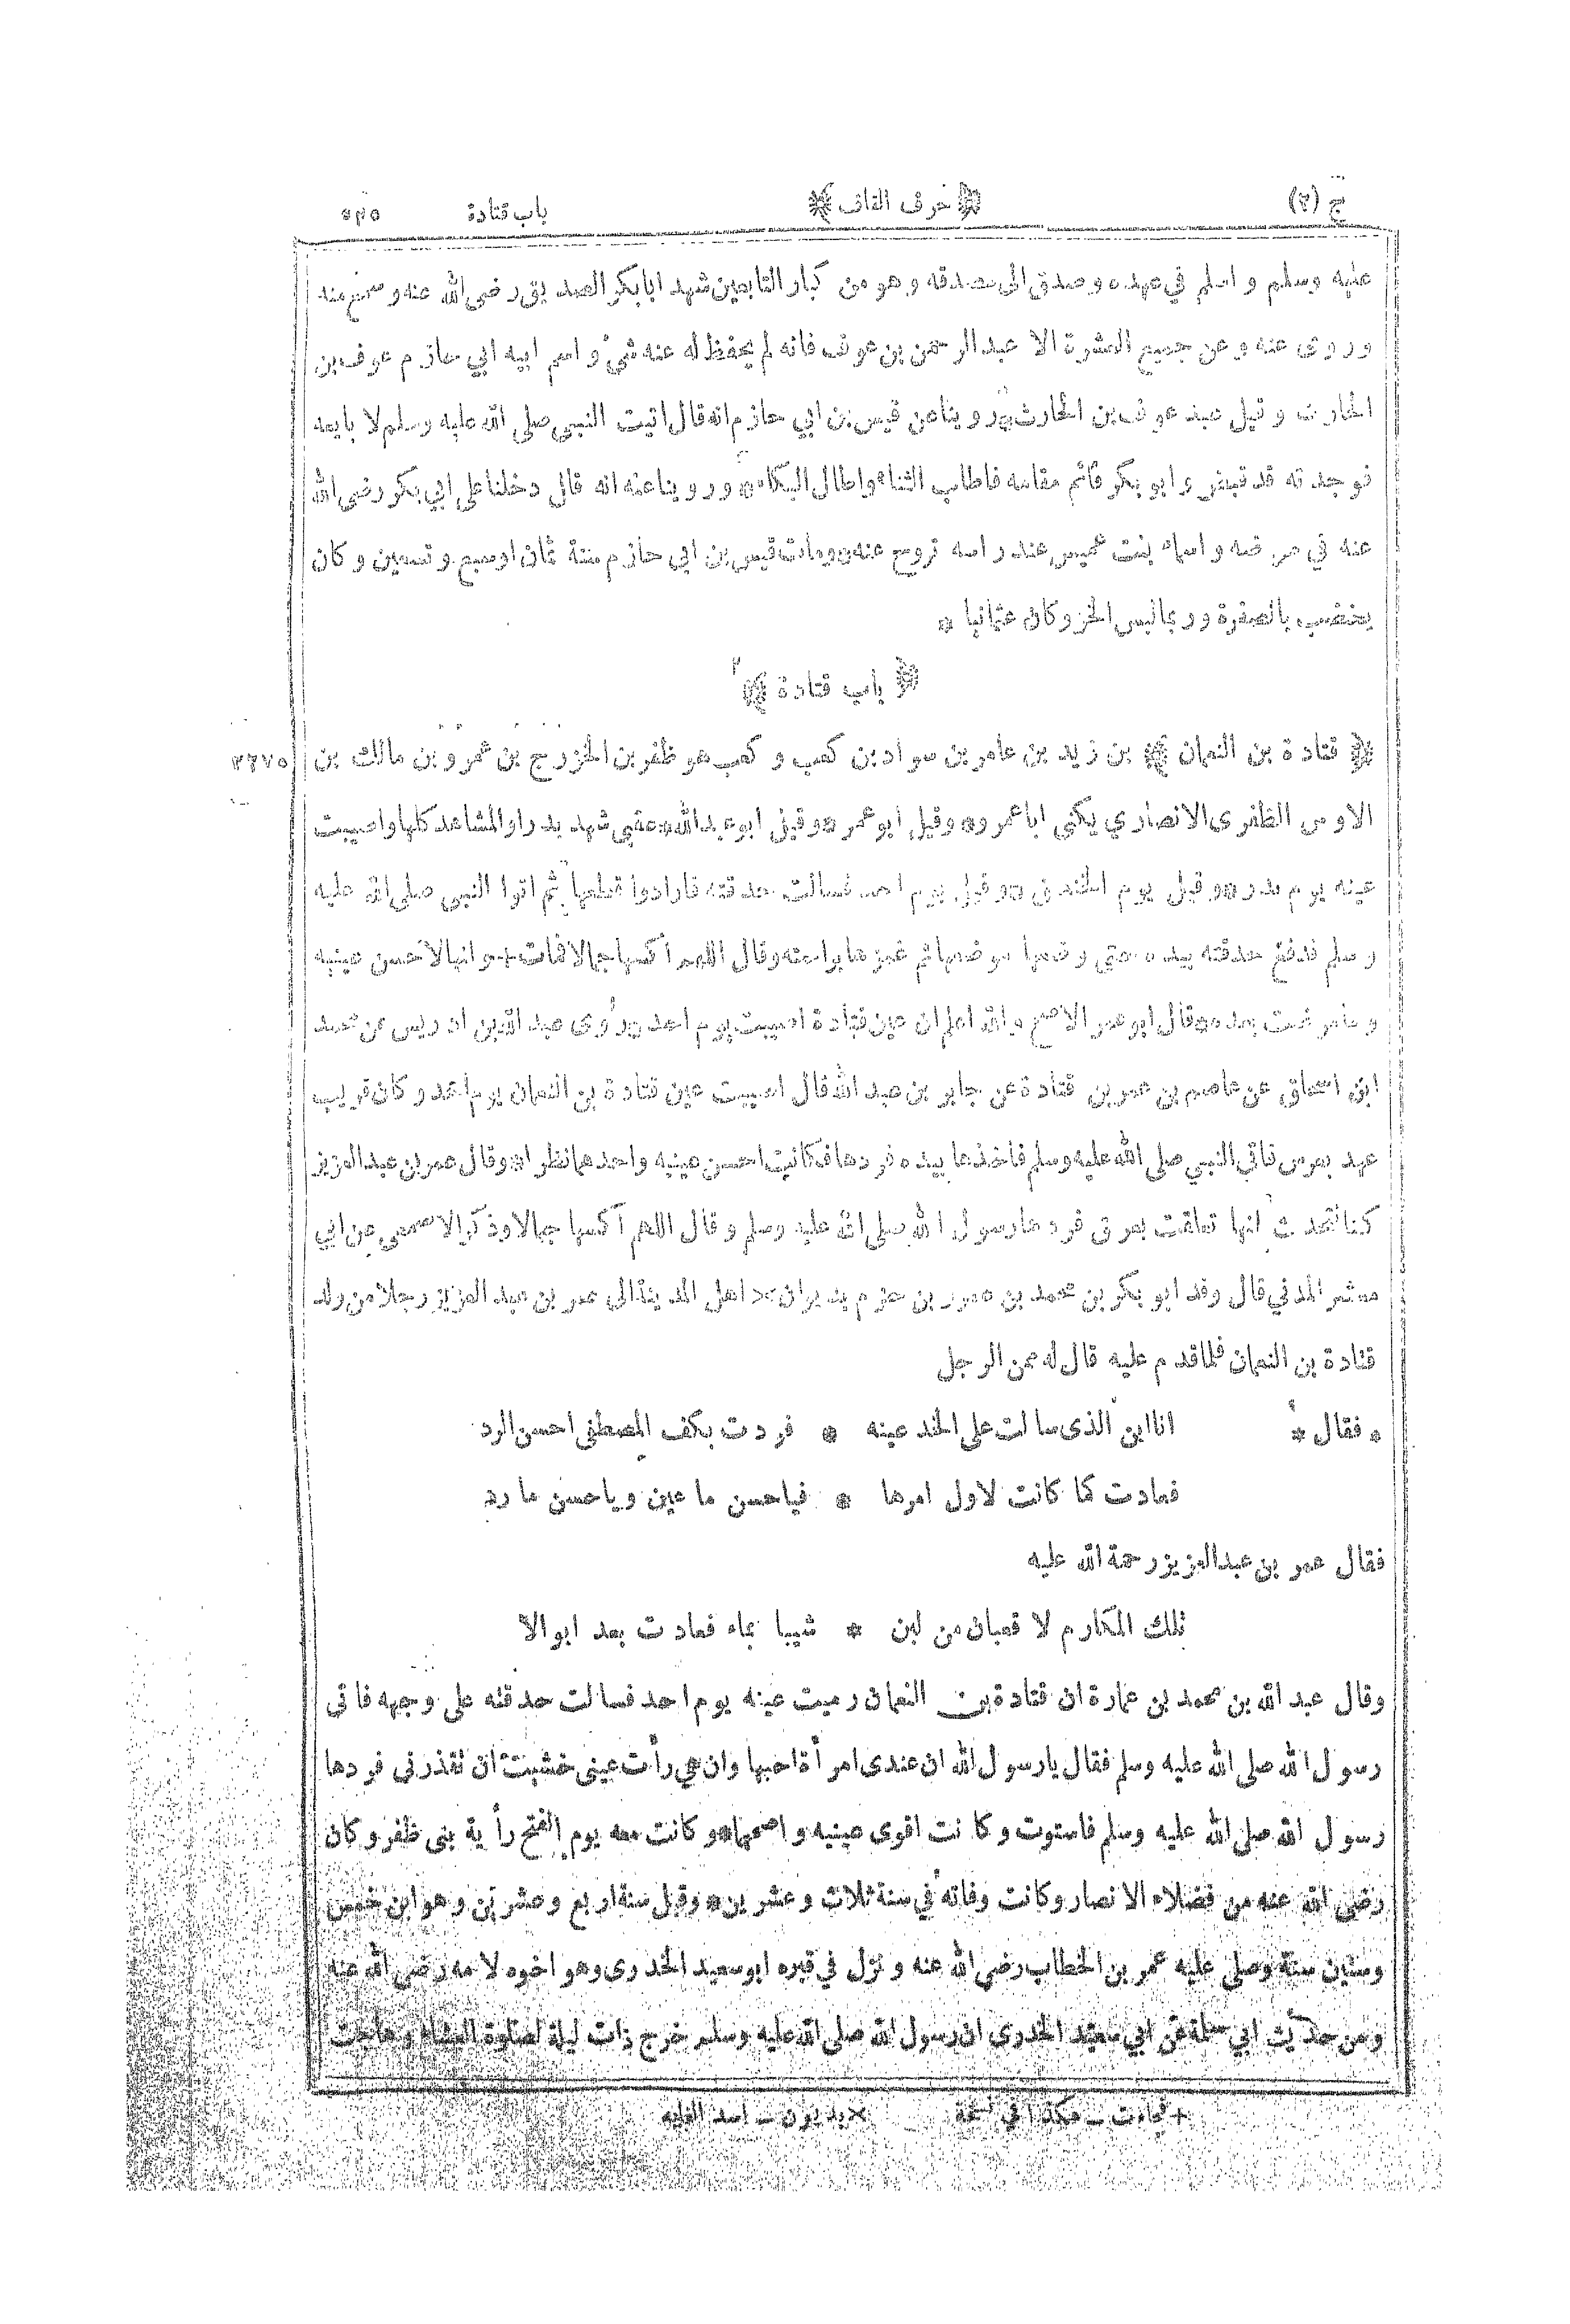 ج (٢) حرف القاف باب قتادة ٥٣٥
عليه وسلم و اسلم في عهده و صدق الى مصدقه و هو من كبار التابعين شهد ابا بكر الصديق رضى الله عنه و سمع منه
و روى عنه و عن جميع العشرة الا عبد الرحمن بن عوف فانه لم يحفظ له عنه شئ و اسم ابيه ابي حازم عوف بن
الحارث و قيل عبد عوف بن الحارث * روينا عن قيس بن ابي حازم انه قال اتيت النبي صلى الله عليه وسلم لا بايعه
فوجدته قد قبض و ابو بكر قائم مقامه فاطاب الثناء واطال البكاء * و روينا عنه انه قال دخلنا على ابي بكر رضى الله
عنه في مرضه و اسماء بنت عميس عند راسه تروح عنه * ومات قيس بن ابي حازم سنة ثمان اوسبع و تسعين و كان
يخضب بالصفرة و ربما لبس الخز وكان عثمانيا *
باب قتادة
٢٢٧٥ قتادة بن النعمان بن زيد بن عامر بن سواد بن كعب و كعب هو ظفر بن الخزرج بن عمرو بن مالك بن
الاوس الظفرى الانصاري يكنى ابا عمرو * وقيل ابو عمر * وقيل ابو عبد الله * عقبي شهد بدرا و المشاهد كلها و اصيبت
عينه يوم بدر * وقيل يوم الخندق * وقيل يوم احد فسالت حدقته فارادوا قطعها ثم اتوا النبي صلى الله عليه
و سلم فدفع حدقته بيده حتى وضعها موضعها ثم غمزها براحته وقال اللهم اكسها جمالا فمات + و انها لاحسن عينيه
و ما مرضت بعده * قال ابو عمر الاصح و الله اعلم ان عين قتادة اصيبت يوم احد * روى عبد الله بن ادريس عن محمد
ابن اسحاق عن عاصم بن عمر بن قتادة عن جابر بن عبد الله قال اصيبت عين قتادة بن النعمان يوم احد و كان قريب
عهد بعرس فاتى النبي صلى الله عليه وسلم فاخذها بيده فردها فكانت احسن عينيه واحدهما نظرا * وقال عمر بن عبد العزيز
كنا نتحدث انها تعلقت بعرق فردها رسول الله صلى الله عليه وسلم وقال اللهم اكسها جمالا وذكر الاصمعي عن ابي
معشر المدني قال وفد ابو بكر بن محمد بن عمرو بن حزم بديوان × اهل المدينة الى عمر بن عبد العزيز رجلا من ولد
قتادة بن النعمان فلما قدم عليه قال له ممن الرجل
* فقال * انا ابن الذى سالت على الخد عينه * فردت بكف المصطفى احسن الرد
فعادت كما كانت لاول امرها * فياحسن ما عين وياحسن ما رد
فقال عمر بن عبد العزيز رحمة الله عليه
تلك المكارم لا قعبان من لبن * شيبا بماء فعادت بعد ابوالا
وقال عبد الله بن محمد بن عمارة ان قتادة بن النعمان رميت عينه يوم احد فسالت حدقته على وجهه فاتى
رسول الله صلى الله عليه وسلم فقال يا رسول الله ان عندى امرأة احبها وان هي رأت عينى خشيت ان تقذرنى فردها
رسول الله صلى الله عليه وسلم فاستوت و كانت اقوى عينيه و اصحها * و كانت معه يوم الفتح رأية بنى ظفر و كان
رضى الله عنه من فضلاء الانصار وكانت وفاته في سنة ثلاث و عشرين * وقيل سنة اربع و عشرين و هو ابن خمس
وستين سنة وصلى عليه عمر بن الخطاب رضى الله عنه و نزل في قبره ابو سعيد الخدرى وهو اخوه لامه رضى الله عنه
ومن حديث ابي سلمة عن ابي سعيد الخدرى ان رسول الله صلى الله عليه وسلم خرج ذات ليلة لصلوة العشاء و هاجت
+ فجاءت ـ هكذا في نسخة × بديون ـ اسد الغابه